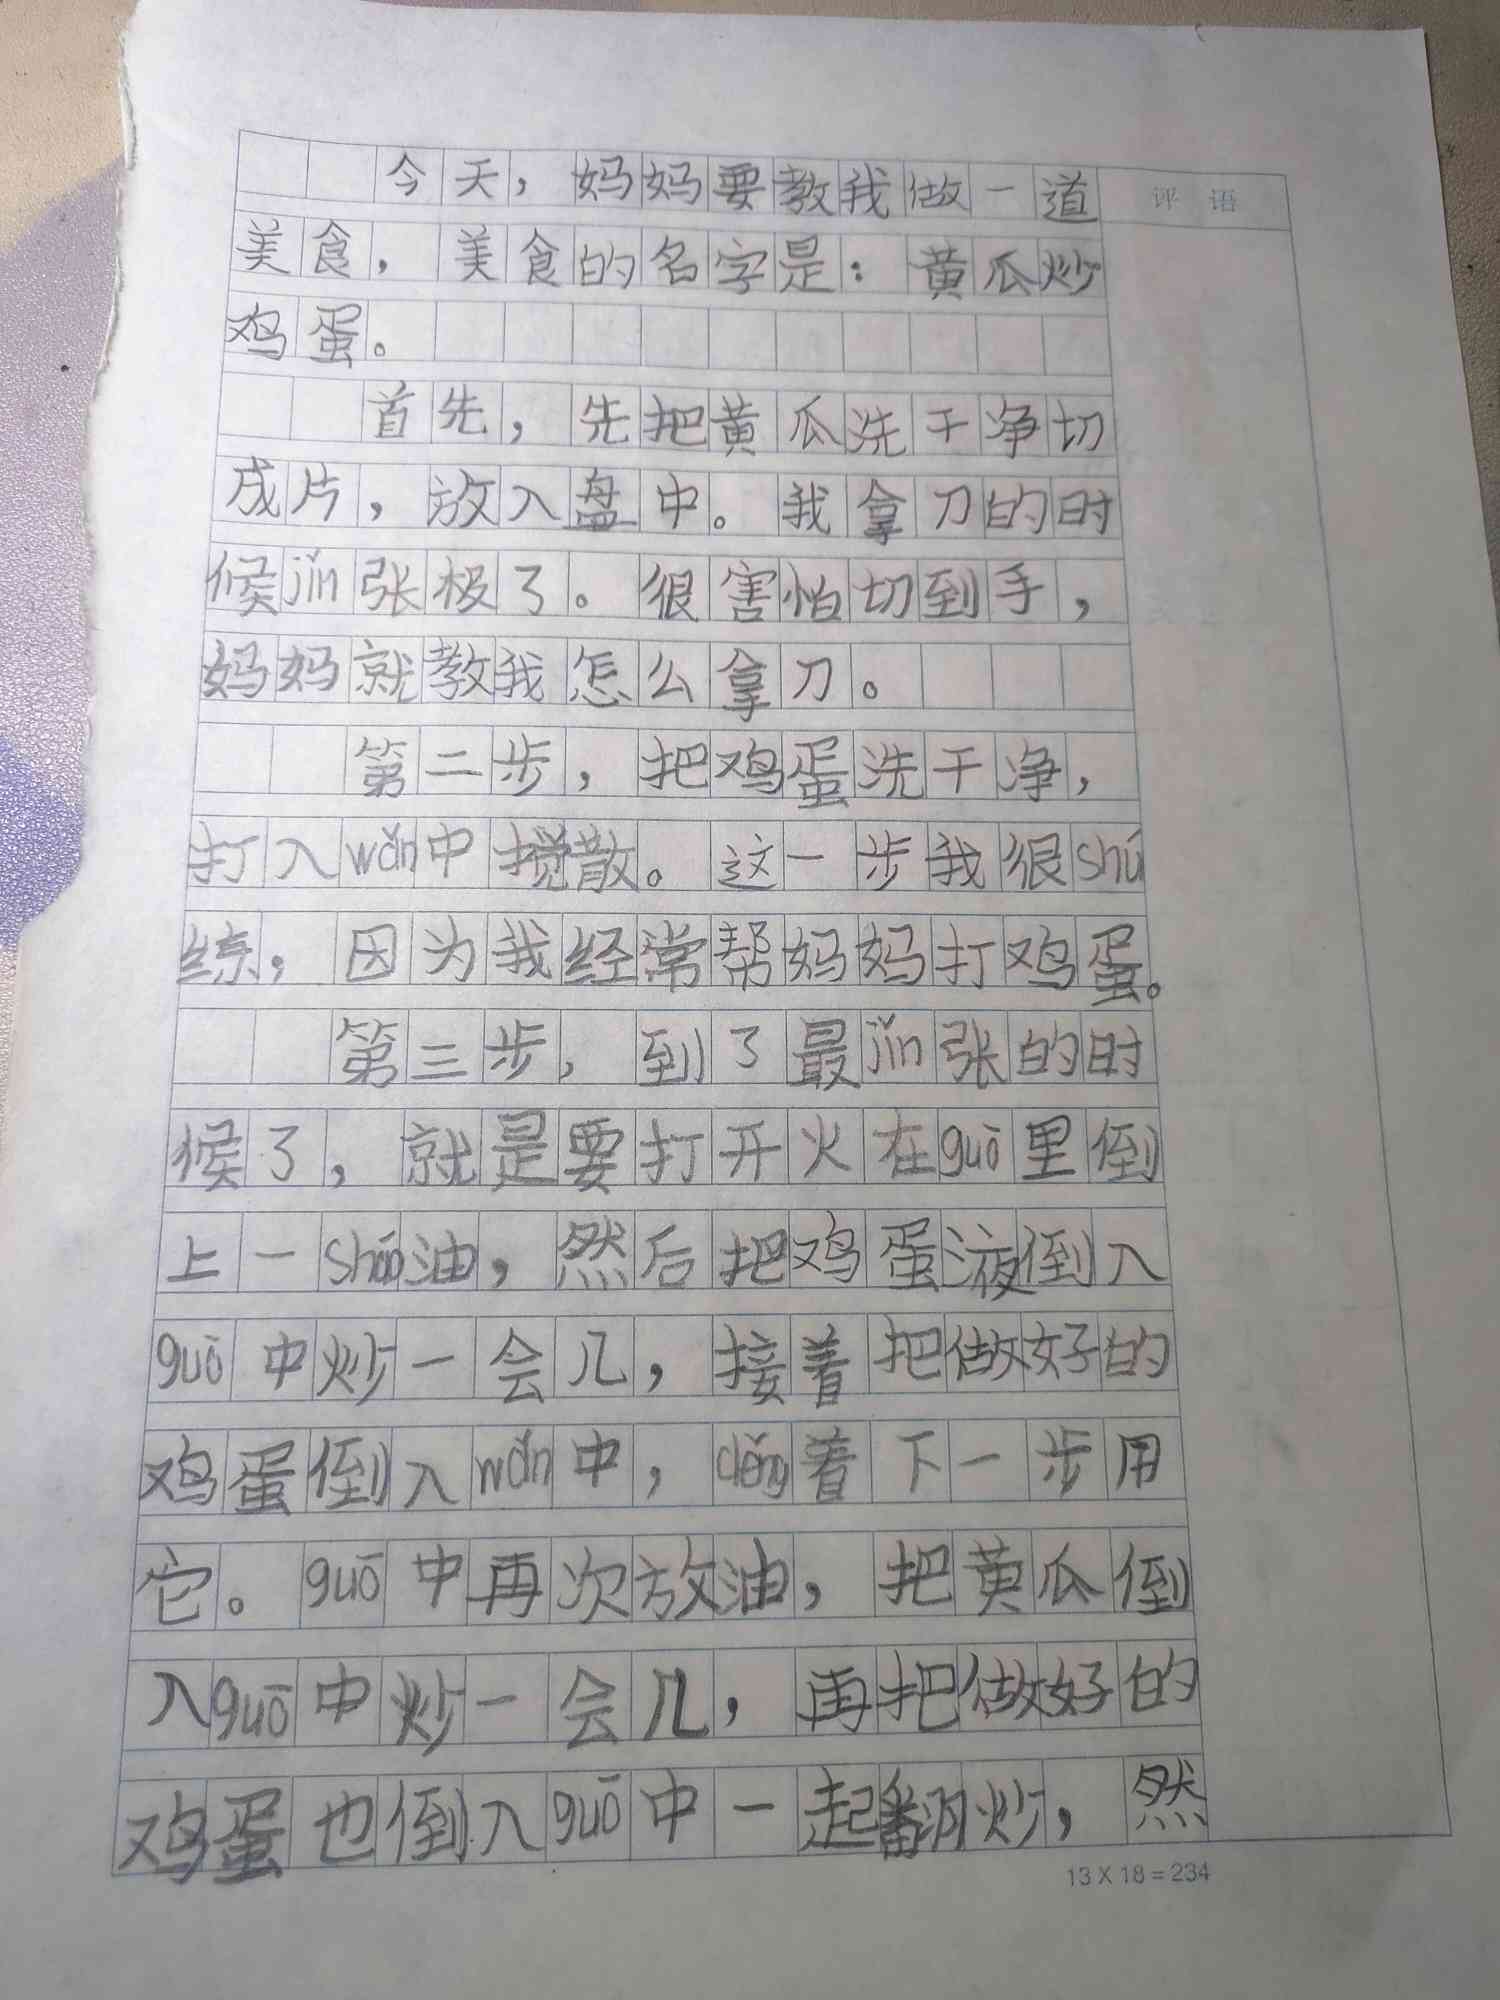 评 语
今天，妈妈要教我做一道
美食，美食的名字是：黄瓜炒
鸡蛋。
首先，先把黄瓜洗干净切
成片，放入盘中。我拿刀的时
候jǐn张极了。很害怕切到手，
妈妈就教我怎么拿刀。
第二步，把鸡蛋洗干净，
打入wǎn中搅散。这一步我很shú
练，因为我经常帮妈妈打鸡蛋。
第三步，到了最jǐn张的时
候了，就是要打开火在guō里倒
上一sháo油，然后把鸡蛋液倒入
guō中炒一会儿，接着把做好的
鸡蛋倒入wǎn中，děng着下一步用
它。guō中再次放油，把黄瓜倒
入guō中炒一会儿，再把做好的
鸡蛋也倒入guō中一起翻炒，然
13×18=234